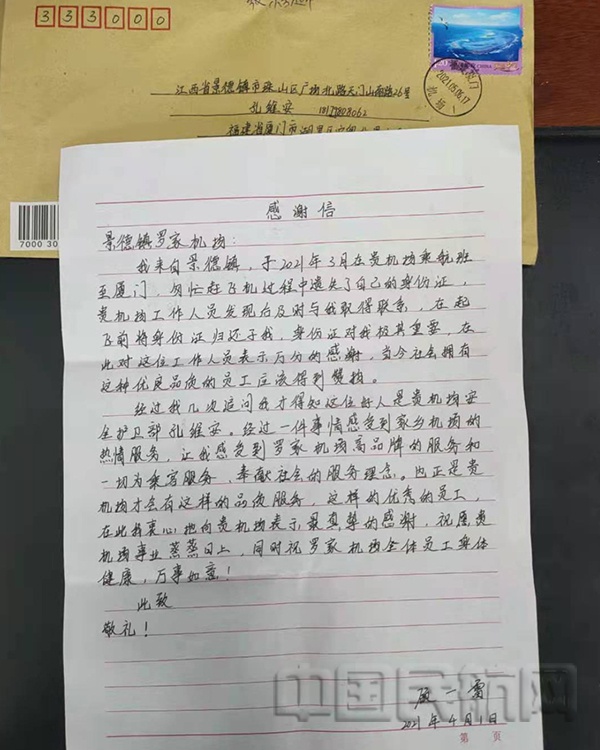 333000
CHINA
2021.05.17
江西省景德镇市珠山区广场北路天门山南路26号
孔维安
福建省厦门市湖里区
7000 30
感谢信
景德镇罗家机场：
我来自景德镇，于2021年3月在贵机场乘航班
至厦门，匆忙赶飞机过程中遗失了自己的身份证，
贵机场工作人员发现后及时与我取得联系，在起
飞前将身份证归还于我，身份证对我极其重要，在
此对这位工作人员表示万分的感谢，当今社会拥有
这种优良品质的员工应该得到赞扬。
经过我几次追问我才得知这位好人是贵机场安
全护卫部孔维安。经过一件事情感受到家乡机场的
热情服务，让我感受到罗家机场高品牌的服务和
一切为乘客服务，奉献社会的服务理念。也正是贵
机场才会有这样的品质服务，这样的优秀的员工，
在此我衷心地向贵机场表示最真挚的感谢，祝愿贵
机场事业蒸蒸日上，同时祝罗家机场全体员工身体
健康，万事如意！
此致
敬礼！
中国民航网
2021年4月1日
第 页